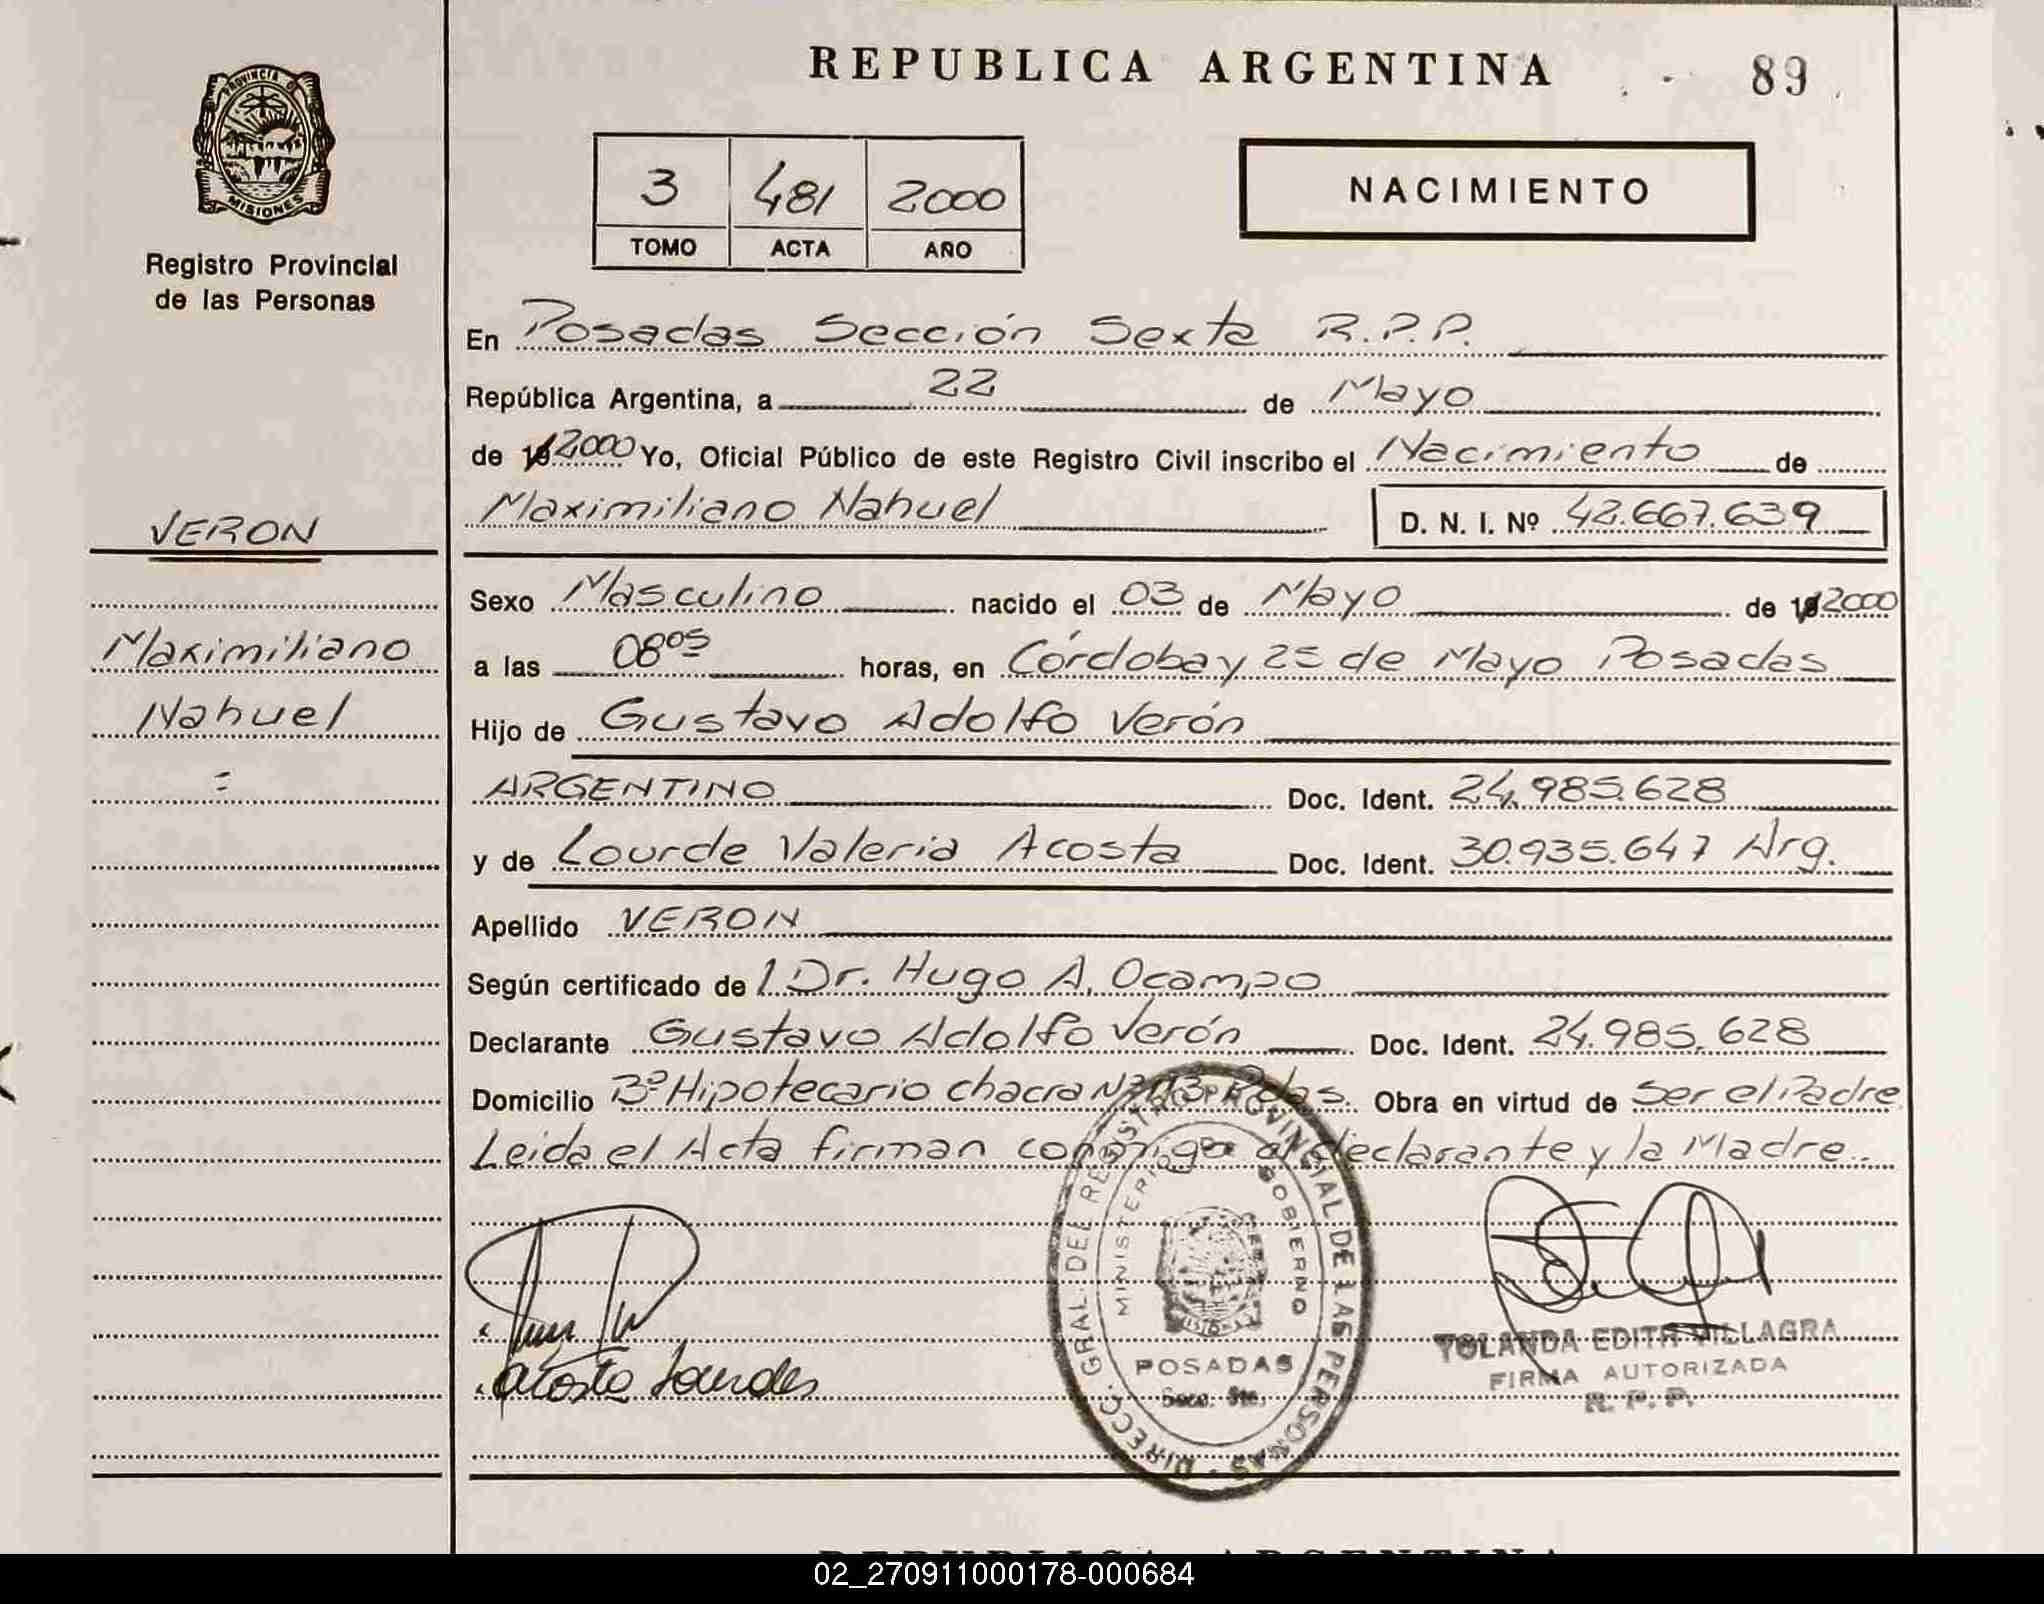 REPUBLICA ARGENTINA
89
PROVINCIA DE
MISIONES
Registro Provincial
de las Personas
3 481 2000
TOMO ACTA AÑO
NACIMIENTO
En Posadas Sección Sexta R.P.P.
República Argentina, a 22 de Mayo
de 2000 Yo, Oficial Público de este Registro Civil inscribo el Nacimiento de
Maximiliano Nahuel D. N. I. Nº 42.667.639
VERON
Maximiliano
Nahuel
Sexo Masculino nacido el 03 de Mayo de 2000
a las 08 05 horas, en Córdoba y 25 de Mayo Posadas
Hijo de Gustavo Adolfo Verón
ARGENTINO Doc. Ident. 24.985.628
y de Lourde Valeria Acosta Doc. Ident. 30.935.647 Arg.
Apellido VERON
Según certificado de l Dr. Hugo A. Ocampo
Declarante Gustavo Adolfo Verón Doc. Ident. 24.985.628
Domicilio Bº Hipotecario chacra Pdas. Obra en virtud de Ser el Padre
Leida el Acta firman conmigo el declarante y la Madre.
Acosta Lourdes
DIRECC. GRAL. DEL REGISTRO PROVINCIAL DE LAS PERSONAS
MINISTERIO GOBIERNO
POSADAS
Secc. 6ta.
YOLANDA EDITH VILLAGRA
FIRMA AUTORIZADA
R. P. P.
REPUBLICA ARGENTINA
02_270911000178-000684